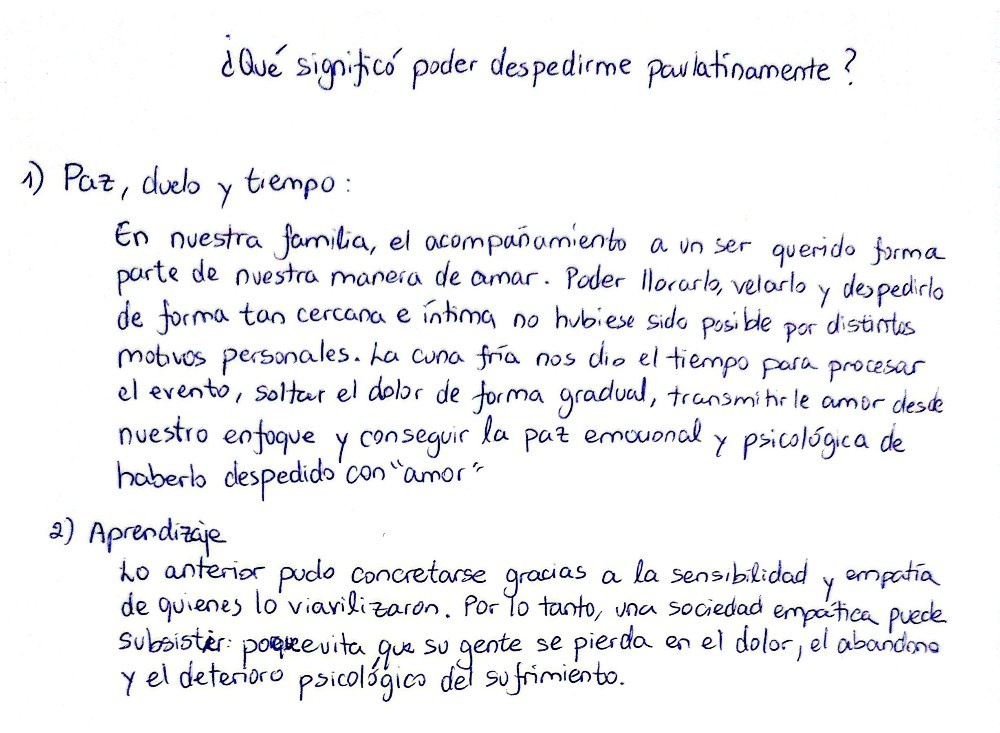 ¿Qué significó poder despedirme paulatinamente?
1) Paz, duelo y tiempo:
En nuestra familia, el acompañamiento a un ser querido forma
parte de nuestra manera de amar. Poder llorarlo, velarlo y despedirlo
de forma tan cercana e íntima no hubiese sido posible por distintos
motivos personales. La cuna fría nos dio el tiempo para procesar
el evento, soltar el dolor de forma gradual, transmitirle amor desde
nuestro enfoque y conseguir la paz emocional y psicológica de
haberlo despedido con "amor"
2) Aprendizaje
Lo anterior pudo concretarse gracias a la sensibilidad y empatía
de quienes lo viavilizaron. Por lo tanto, una sociedad empática puede
subsistir: porque evita que su gente se pierda en el dolor, el abandono
y el deterioro psicológico del sufrimiento.